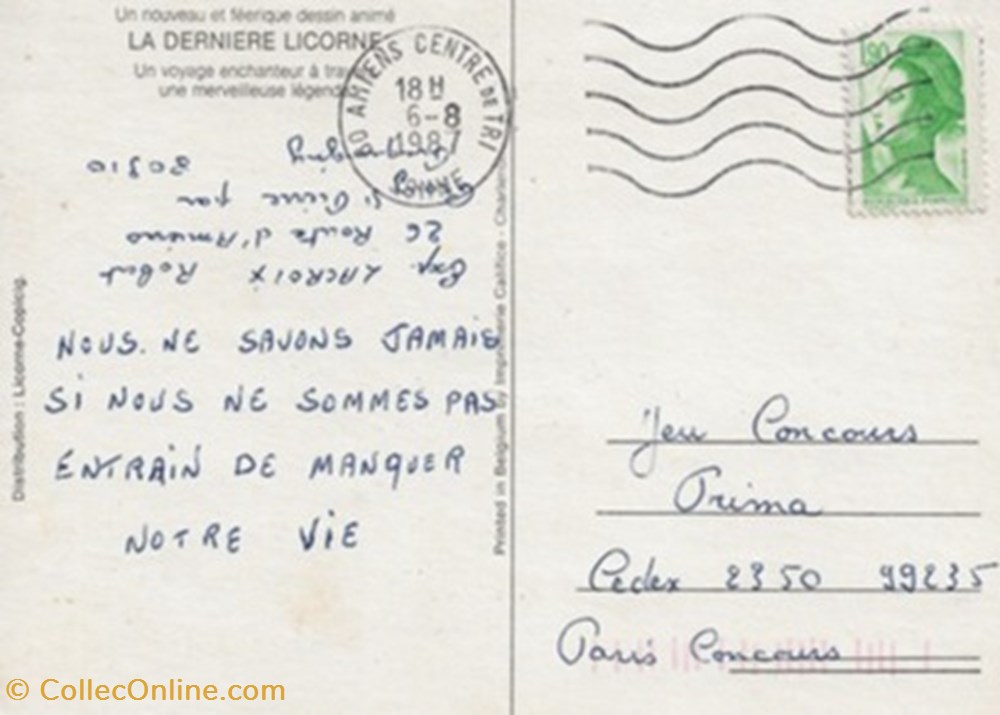 Un nouveau et féerique dessin animé
LA DERNIERE LICORNE
Un voyage enchanteur à
une merveilleuse
80 AMIENS CENTRE DE TRI
18 H
6-8
1987
SOMME
1,90
Exp. LACROIX Robert
26 Route d'Amiens
St Pierre par
80310
NOUS. NE SAVONS JAMAIS
SI NOUS NE SOMMES PAS
ENTRAIN DE MANQUER
NOTRE VIE
Distribution : Licorne-Copicig.
Printed in Belgium by Imprimerie Califice -
Jeu Concours
Prima
Cedex 2350 99235
Paris Concours
© CollecOnline.com